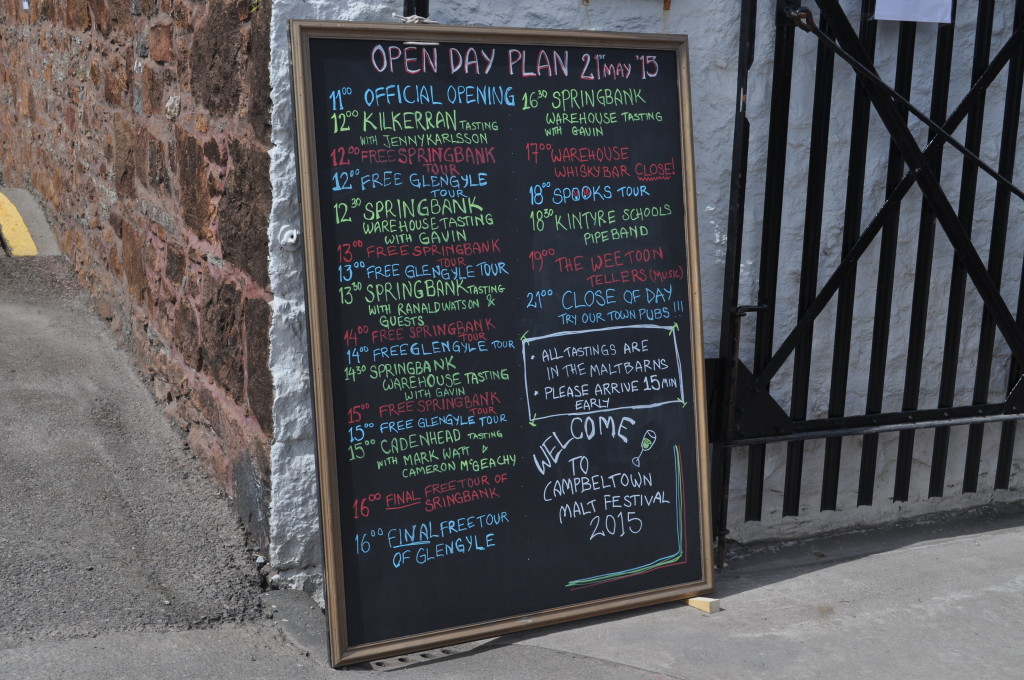 OPEN DAY PLAN 21ST MAY '15
11⁰⁰ OFFICIAL OPENING
12⁰⁰ KILKERRAN TASTING
WITH JENNY KARLSSON
12⁰⁰ FREE SPRINGBANK
TOUR
12⁰⁰ FREE GLENGYLE
TOUR
12³⁰ SPRINGBANK
WAREHOUSE TASTING
WITH GAVIN
13⁰⁰ FREE SPRINGBANK
TOUR
13⁰⁰ FREE GLENGYLE TOUR
13³⁰ SPRINGBANK TASTING
WITH RANALD WATSON &
GUESTS
14⁰⁰ FREE SPRINGBANK
TOUR
14⁰⁰ FREE GLENGYLE TOUR
14³⁰ SPRINGBANK
WAREHOUSE TASTING
WITH GAVIN
15⁰⁰ FREE SPRINGBANK
TOUR
15⁰⁰ FREE GLENGYLE TOUR
15⁰⁰ CADENHEAD TASTING
WITH MARK WATT &
CAMERON McGEACHY
16⁰⁰ FINAL FREE TOUR OF
SRINGBANK
16⁰⁰ FINAL FREE TOUR
OF GLENGYLE
16³⁰ SPRINGBANK
WAREHOUSE TASTING
WITH GAVIN
17⁰⁰ WAREHOUSE
WHISKY BAR CLOSE!
18⁰⁰ SPOOKS TOUR
18³⁰ KINTYRE SCHOOLS
PIPE BAND
19⁰⁰ THE WEE TOON
TELLERS (MUSIC)
21⁰⁰ CLOSE OF DAY
TRY OUR TOWN PUBS !!!
• ALL TASTINGS ARE
IN THE MALTBARNS
• PLEASE ARRIVE 15 MIN
EARLY
WELCOME
TO
CAMPBELTOWN
MALT FESTIVAL
2015